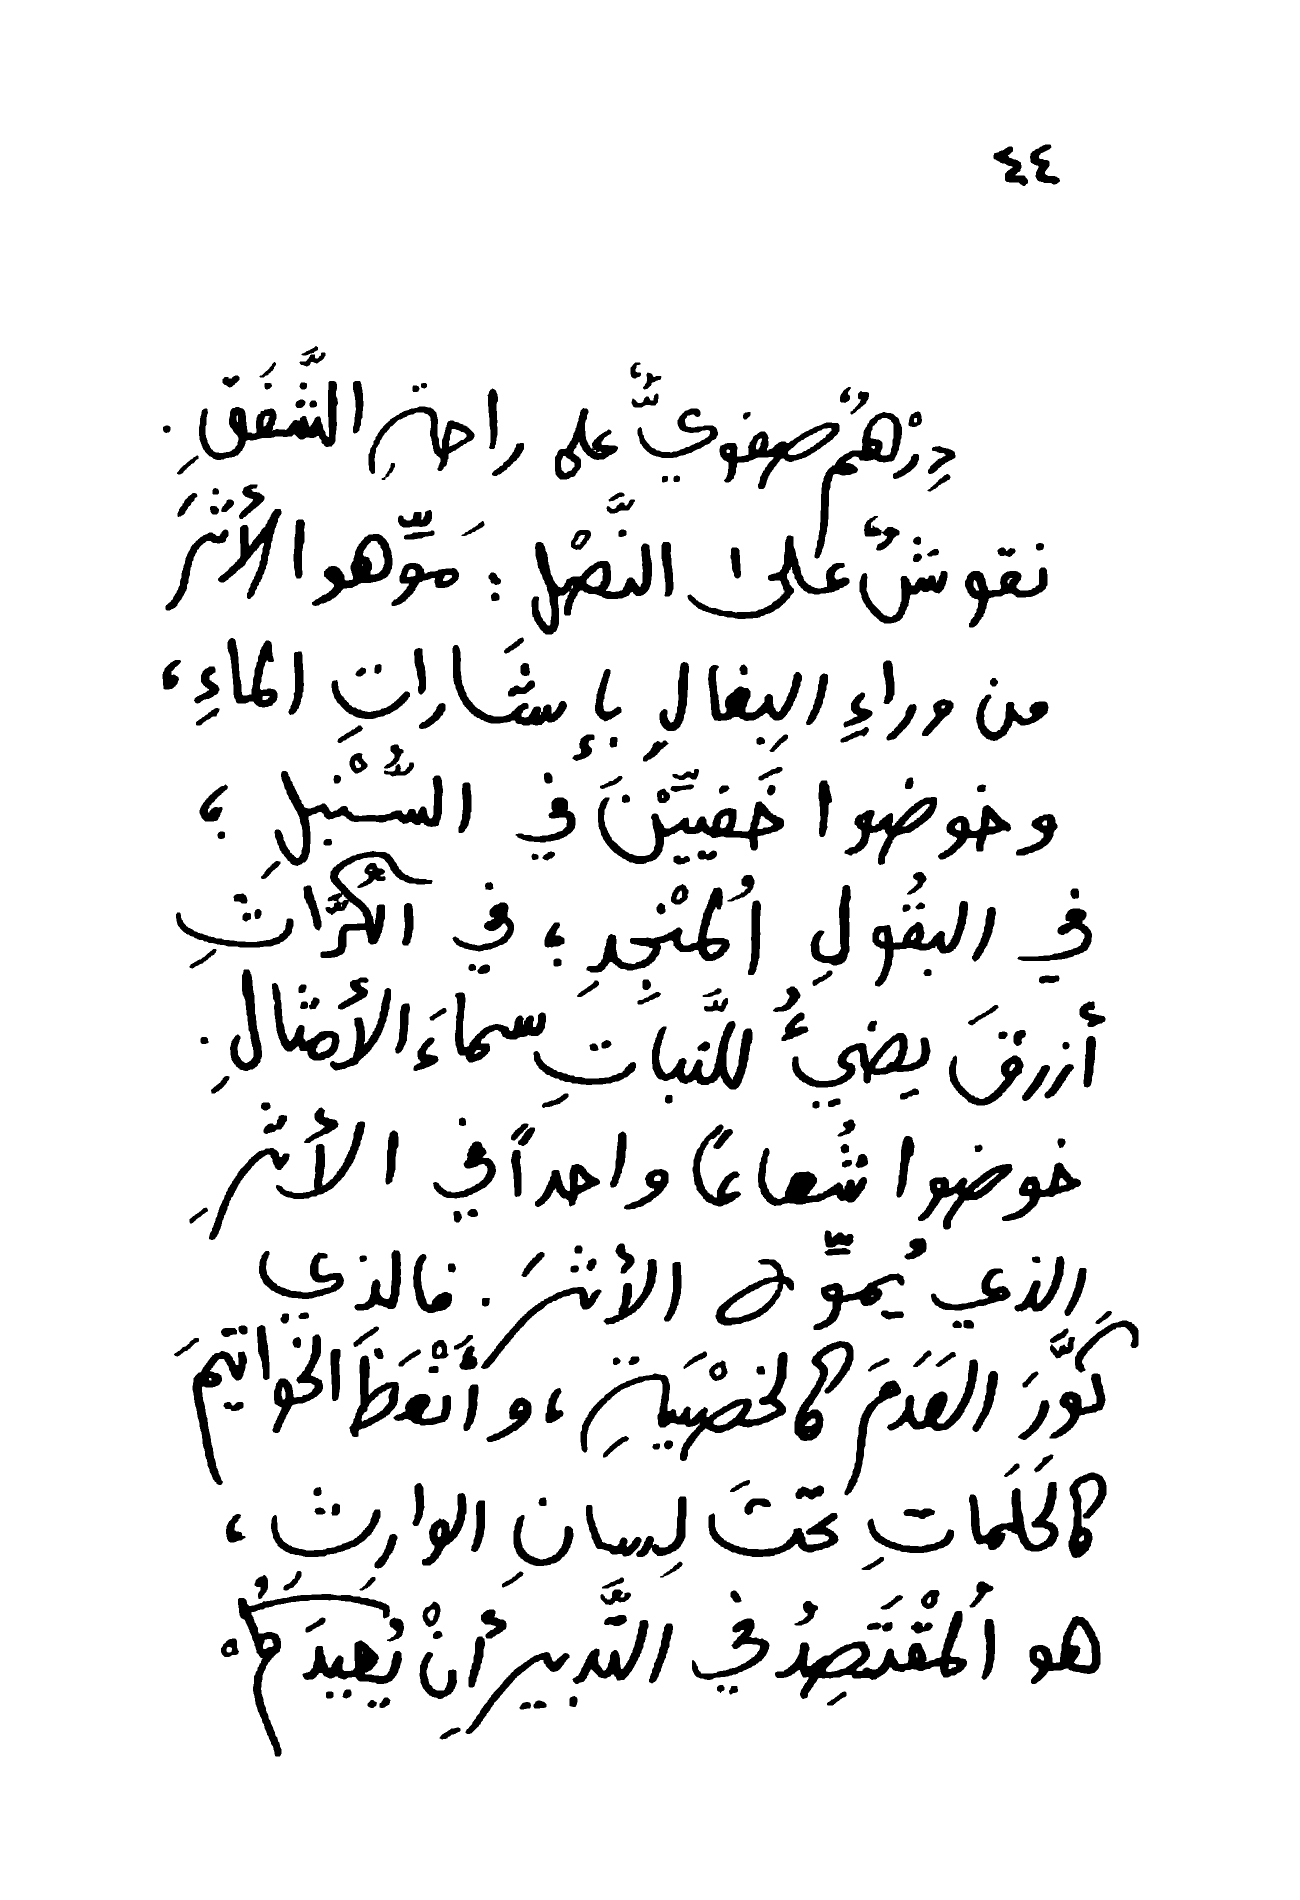 ٤٤
دِرْهَمٌ صفويٌّ على راحةِ الشَّفَقِ .
نقوشٌ على النَّصْلِ : مَوِّهوا الأَثَرَ
من وراءِ البِغالِ بإِشَاراتِ الماءِ ،
وخوضوا خَفيِّيْنَ في السُّنْبلِ ؛
في البقُولِ المُنْجِدِ ؛ في الكُرَّاثِ
أزرقَ يضيءُ للنَّباتِ سماءَ الأَمثالِ .
خوضوا شُعاعاً واحداً في الأَثرِ
الذي يُموِّه الأثرَ . فالذي
كَوَّرَ القَدَمَ كالخَصْيَةِ ، وأَنْعَظَ الخواتيمَ
كالحَلَماتِ تحتَ لِسانِ الوارِثِ ،
هو المُقْتَصِدُ في التَّدبيرِ أنْ يُهيدَكُمُ